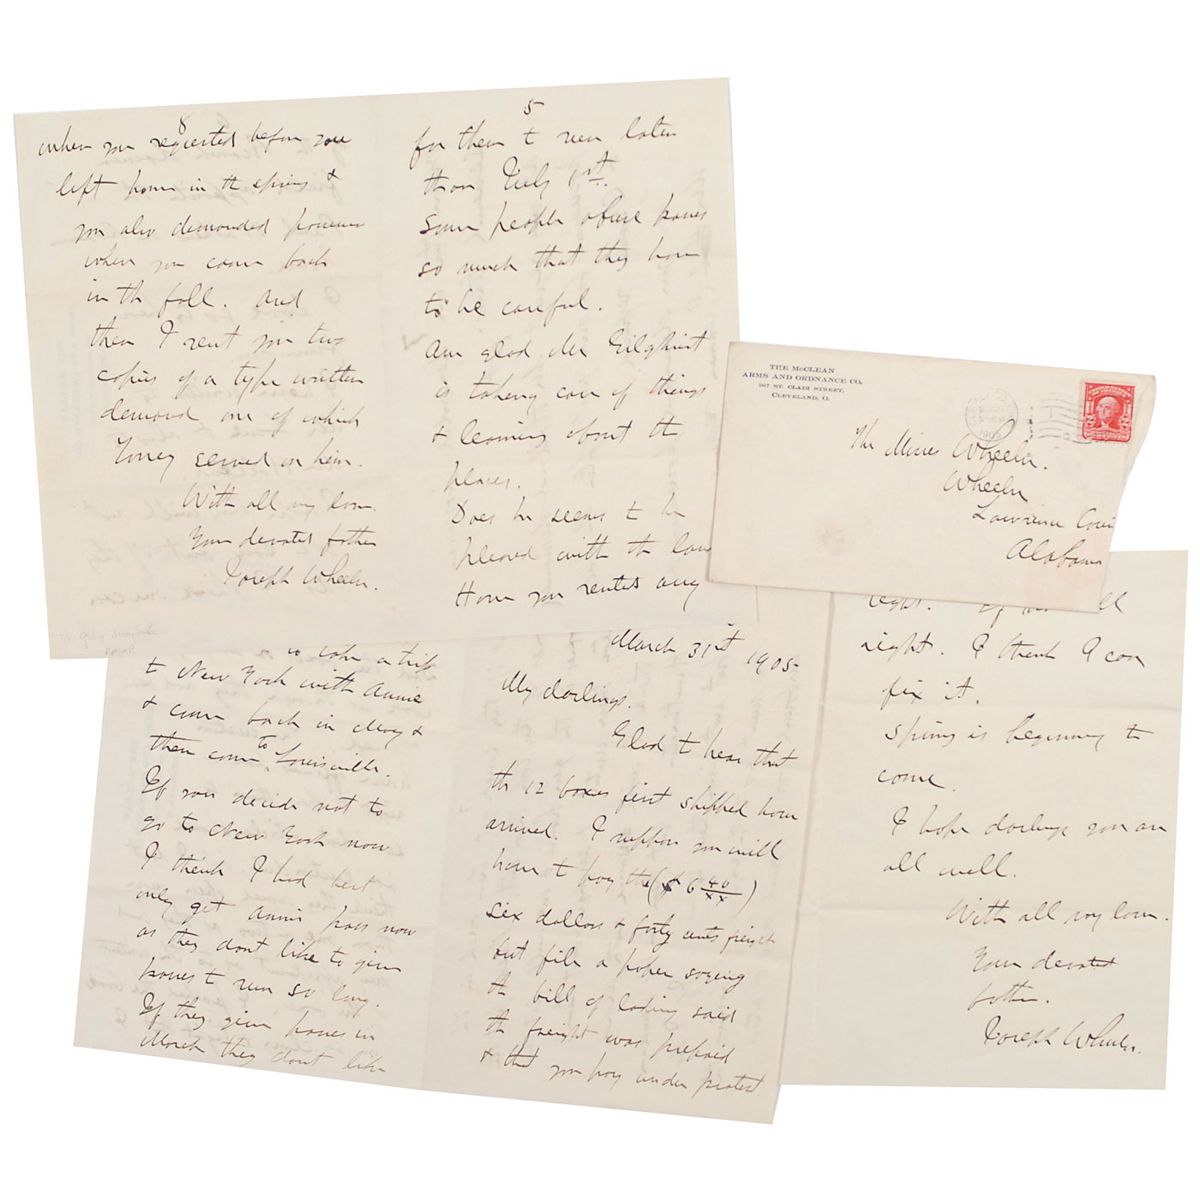 8
when you requested before you
left home in the spring &
you also demanded
when you came back
in th fall. And
then I sent you two
copies of a type written
demand one of which
Toney served on him.
With all my love
Your devoted father
Joseph Wheeler.
5
for them to run later
than July 1st.
Some people abuse passes
so much that they have
to be careful.
Am glad Mr Gilchrist
is taking care of things
& learning about the
places.
Does he seems to be
pleased with th
Have you rented any
THE McCLEAN
ARMS AND ORDNANCE CO.
367 ST. CLAIR STREET,
CLEVELAND, O.
The Misses Wheeler.
Wheeler
Lawrence Coun
Alabama
to take a trip
to New York with Annie
& come back in May &
then come to Louisville.
If you decide not to
go to New York now
I think I had best
only get Annie pass now
as they dont like to give
passes to run so long.
If they give passes in
March they dont like
March 31st 1905
My darlings.
Glad to hear that
th 12 boxes first shipped have
arrived. I suppose you will
have to pay the ($6 40/xx)
six dollars & forty cents freight
but file a paper saying
th bill of lading said
th freight was prepaid
& that you pay under protest
right. If
right. I think I can
fix it.
Spring is beginning to
come.
I hope darlings you are
all well.
With all my love.
Your devoted
father.
Joseph Wheeler.